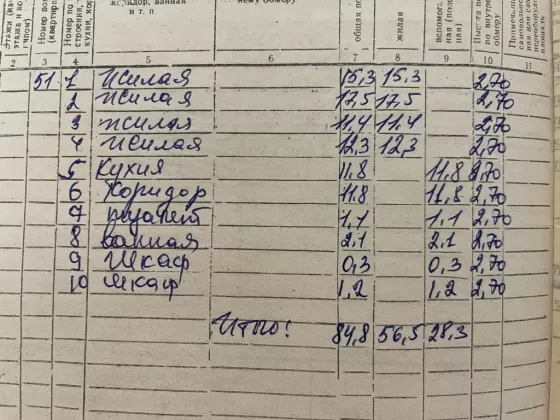 коридор, ванная
и т. п.
нему обмеру
Номер по
(квартира
жилая
3 4 5 6 7 8 9 10 11
51 1 жилая 15,3 15,3 2,70
2 жилая 17,5 17,5 2,70
3 жилая 11,4 11,4 2,70
4 жилая 12,3 12,3 2,70
5 кухня 11.8 11.8 2,70
6 коридор 11.8 11,8 2,70
7 туалет 1,1 1,1 2,70
8 ванная 2,1 2,1 2,70
9 шкаф 0,3 0,3 2,70
10 шкаф 1,2 1,2 2,70
Итого: 84,8 56,5 28,3